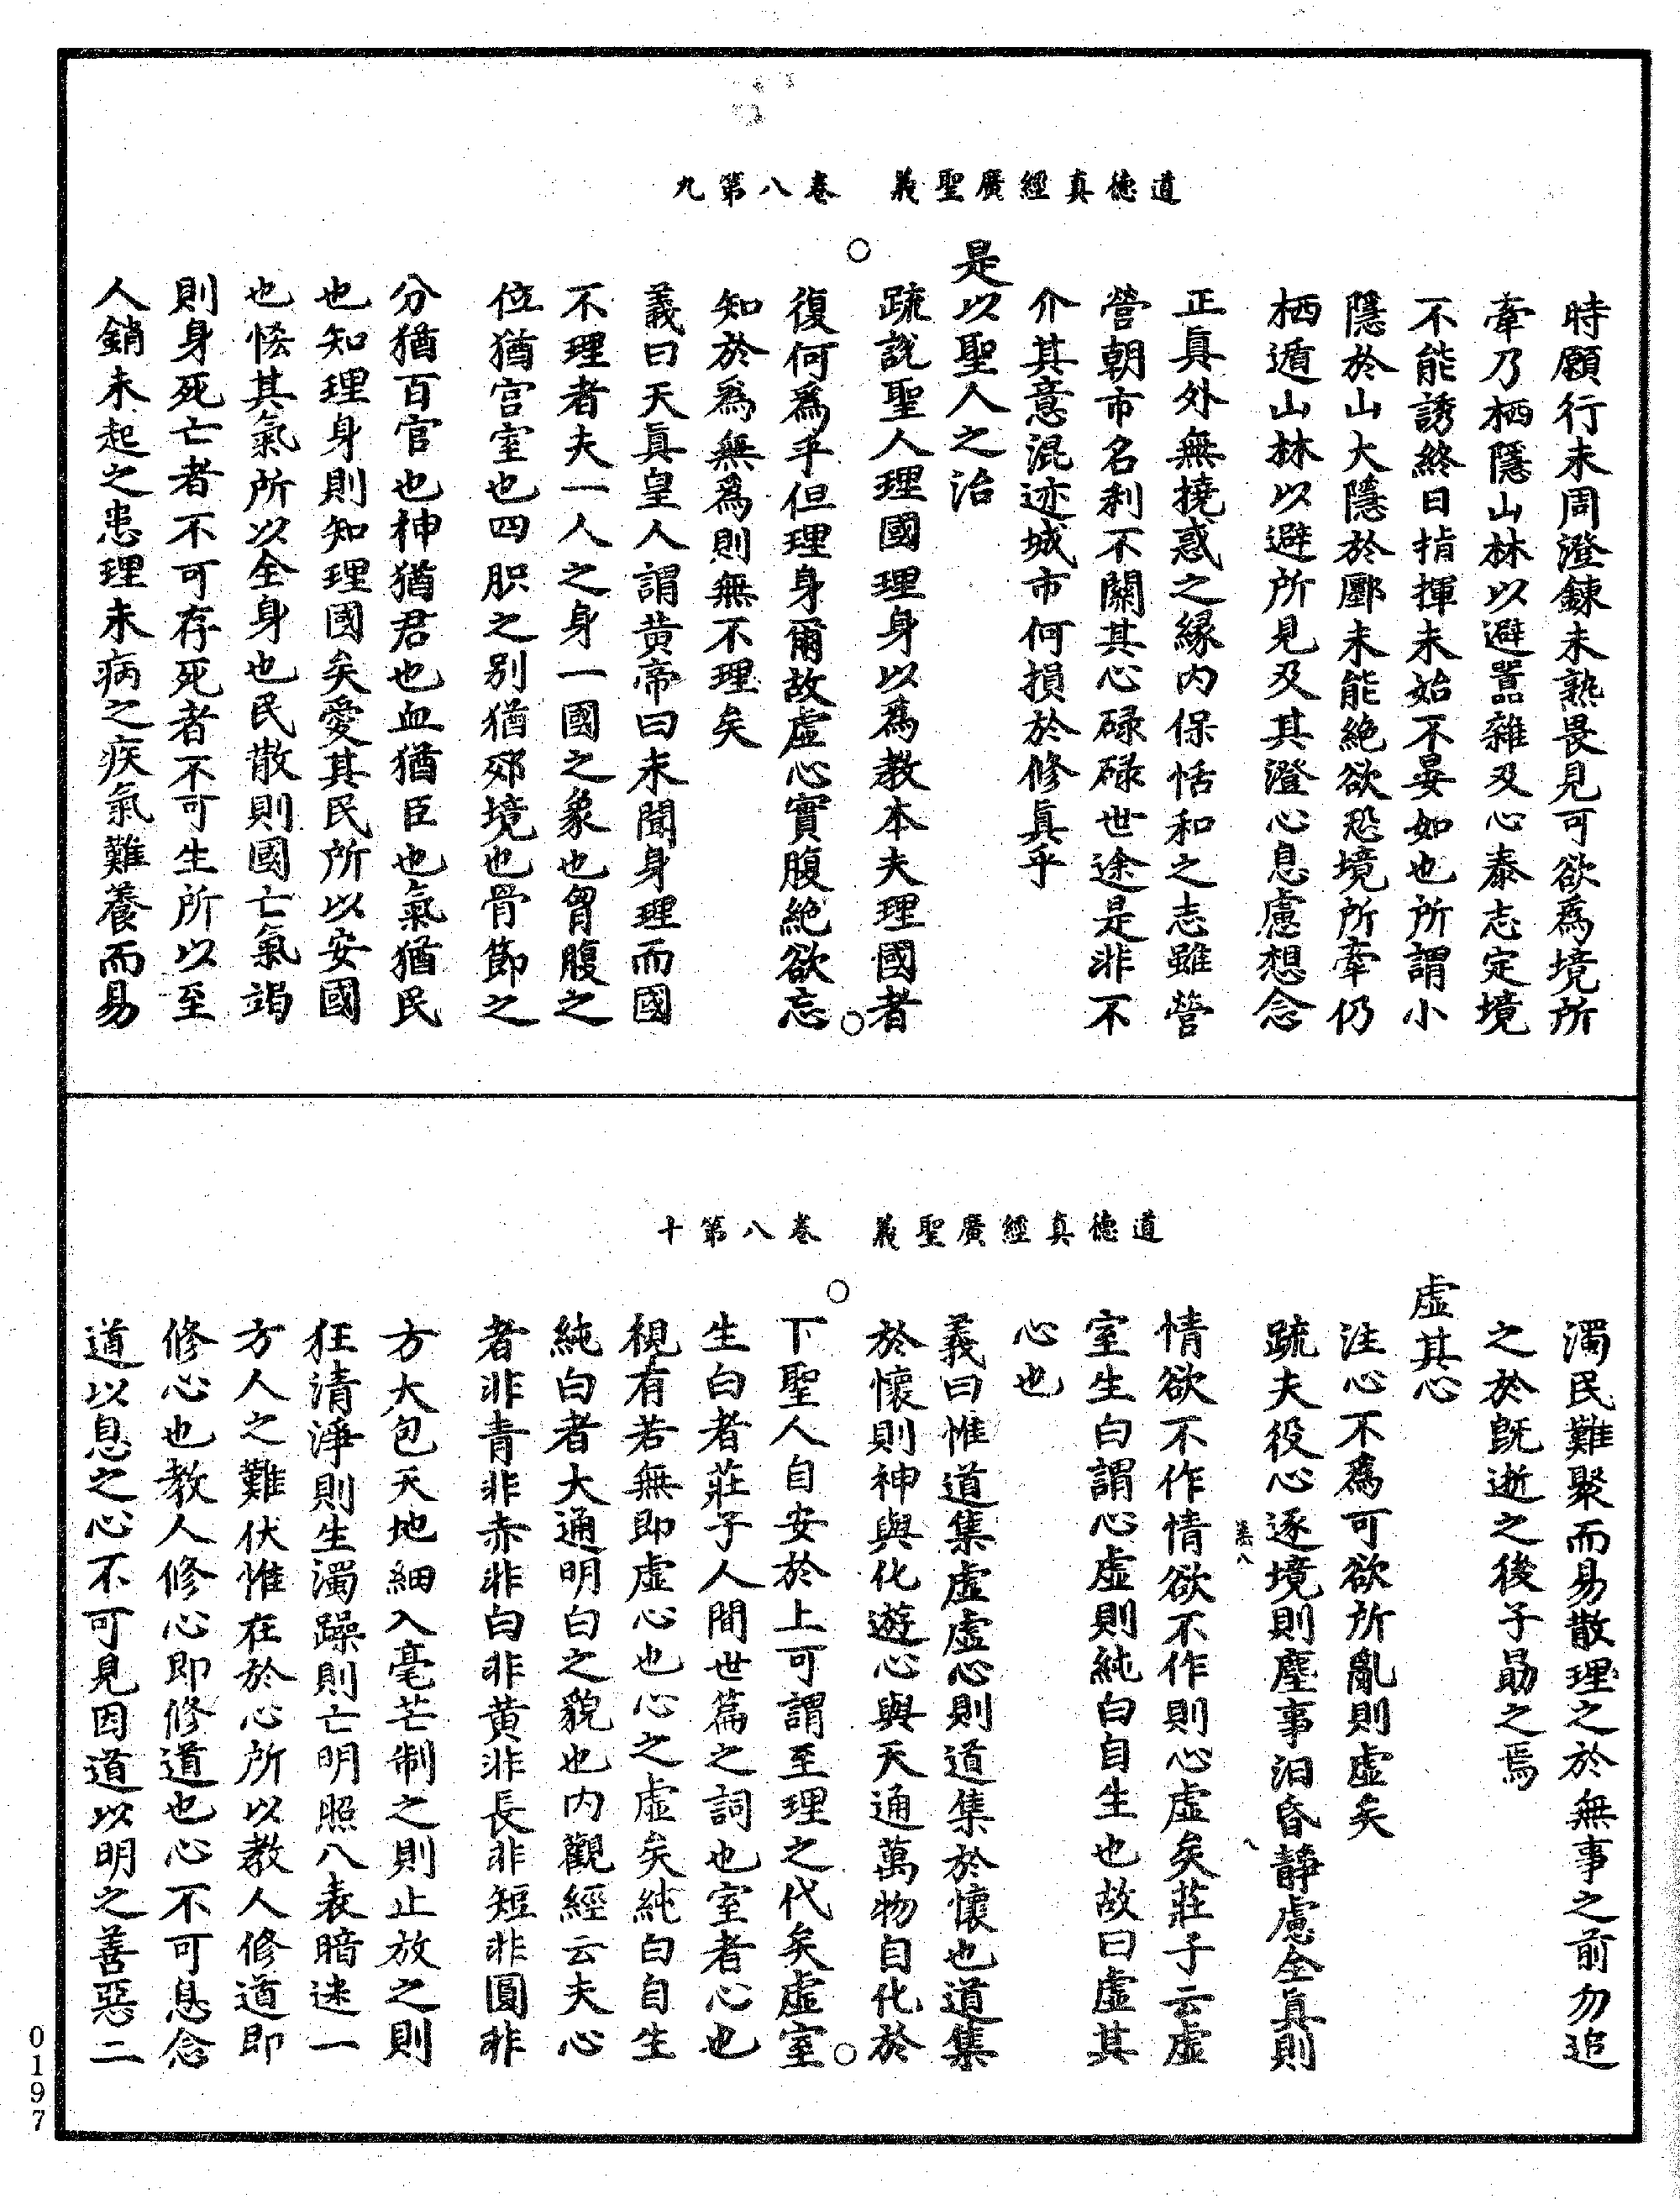 道德真經廣聖義　卷八第九
時願行未周澄鍊未熟畏見可欲為境所
牽乃栖隱山林以避囂雜及心泰志定境
不能誘終日指揮未始不晏如也所謂小
隱於山大隱於鄽未能絶欲恐境所牽仍
栖遁山林以避所見及其澄心息慮想念
正眞外無撓惑之緣内保恬和之志雖營
營朝市名利不關其心碌碌世途是非不
介其意混迹城市何損於修眞乎
是以聖人之治
疏說聖人理國理身以為教本夫理國者
復何為乎但理身爾故虛心實腹絶欲忘
知於為無為則無不理矣
義曰天眞皇人謂黄帝曰未聞身理而國
不理者夫一人之身一國之象也胷腹之
位猶宫室也四胑之别猶郊境也骨節之
分猶百官也神猶君也血猶臣也氣猶民
也知理身則知理國矣愛其民所以安國
也恡其氣所以全身也民散則國亡氣竭
則身死亡者不可存死者不可生所以至
人銷未起之患理未病之疾氣難養而易
道德真經廣聖義　卷八第十
濁民難聚而易散理之於無事之前勿追
之於既逝之後子勗之焉
虛其心
注心不為可欲所亂則虛矣
疏夫役心逐境則塵事汩昏靜慮全眞則
卷八
八
情欲不作情欲不作則心虛矣莊子云虛
室生白謂心虛則純白自生也故曰虛其
心也
義曰惟道集虛虛心則道集於懷也道集
於懷則神與化遊心與天通萬物自化於
下聖人自安於上可謂至理之代矣虛室
生白者莊子人間世篇之詞也室者心也
視有若無即虛心也心之虛矣純白自生
純白者大通明白之貌也内觀經云夫心
者非青非赤非白非黄非長非短非圓非
方大包天地細入毫芒制之則止放之則
狂清淨則生濁躁則亡明照八表暗迷一
方人之難伏惟在於心所以教人修道即
修心也教人修心即修道也心不可息念
道以息之心不可見因道以明之善惡二
0197